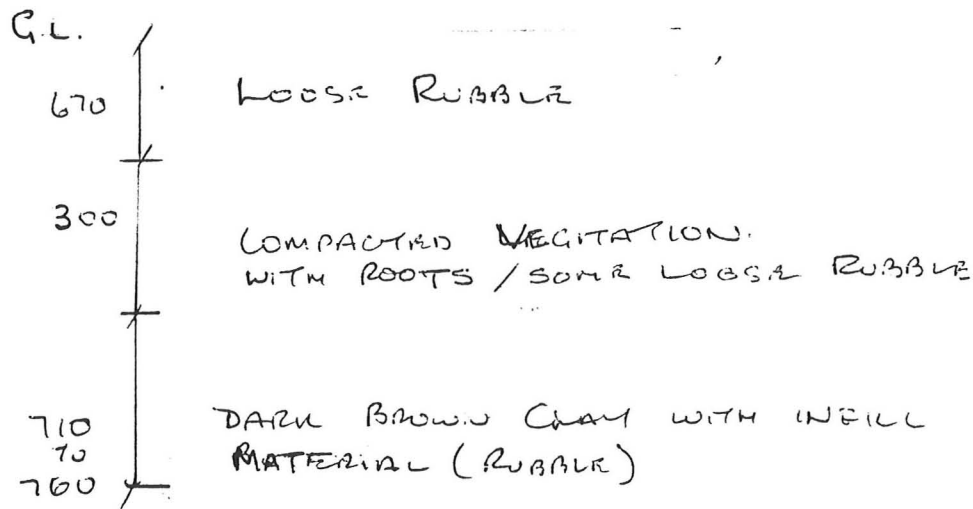 G.L.
670 LOOSE RUBBLE
300
COMPACTED VEGITATION.
WITH ROOTS / SOME LOOSE RUBBLE
710 DARK BROWN CLAY WITH INFILL
TO MATERIAL (RUBBLE)
760